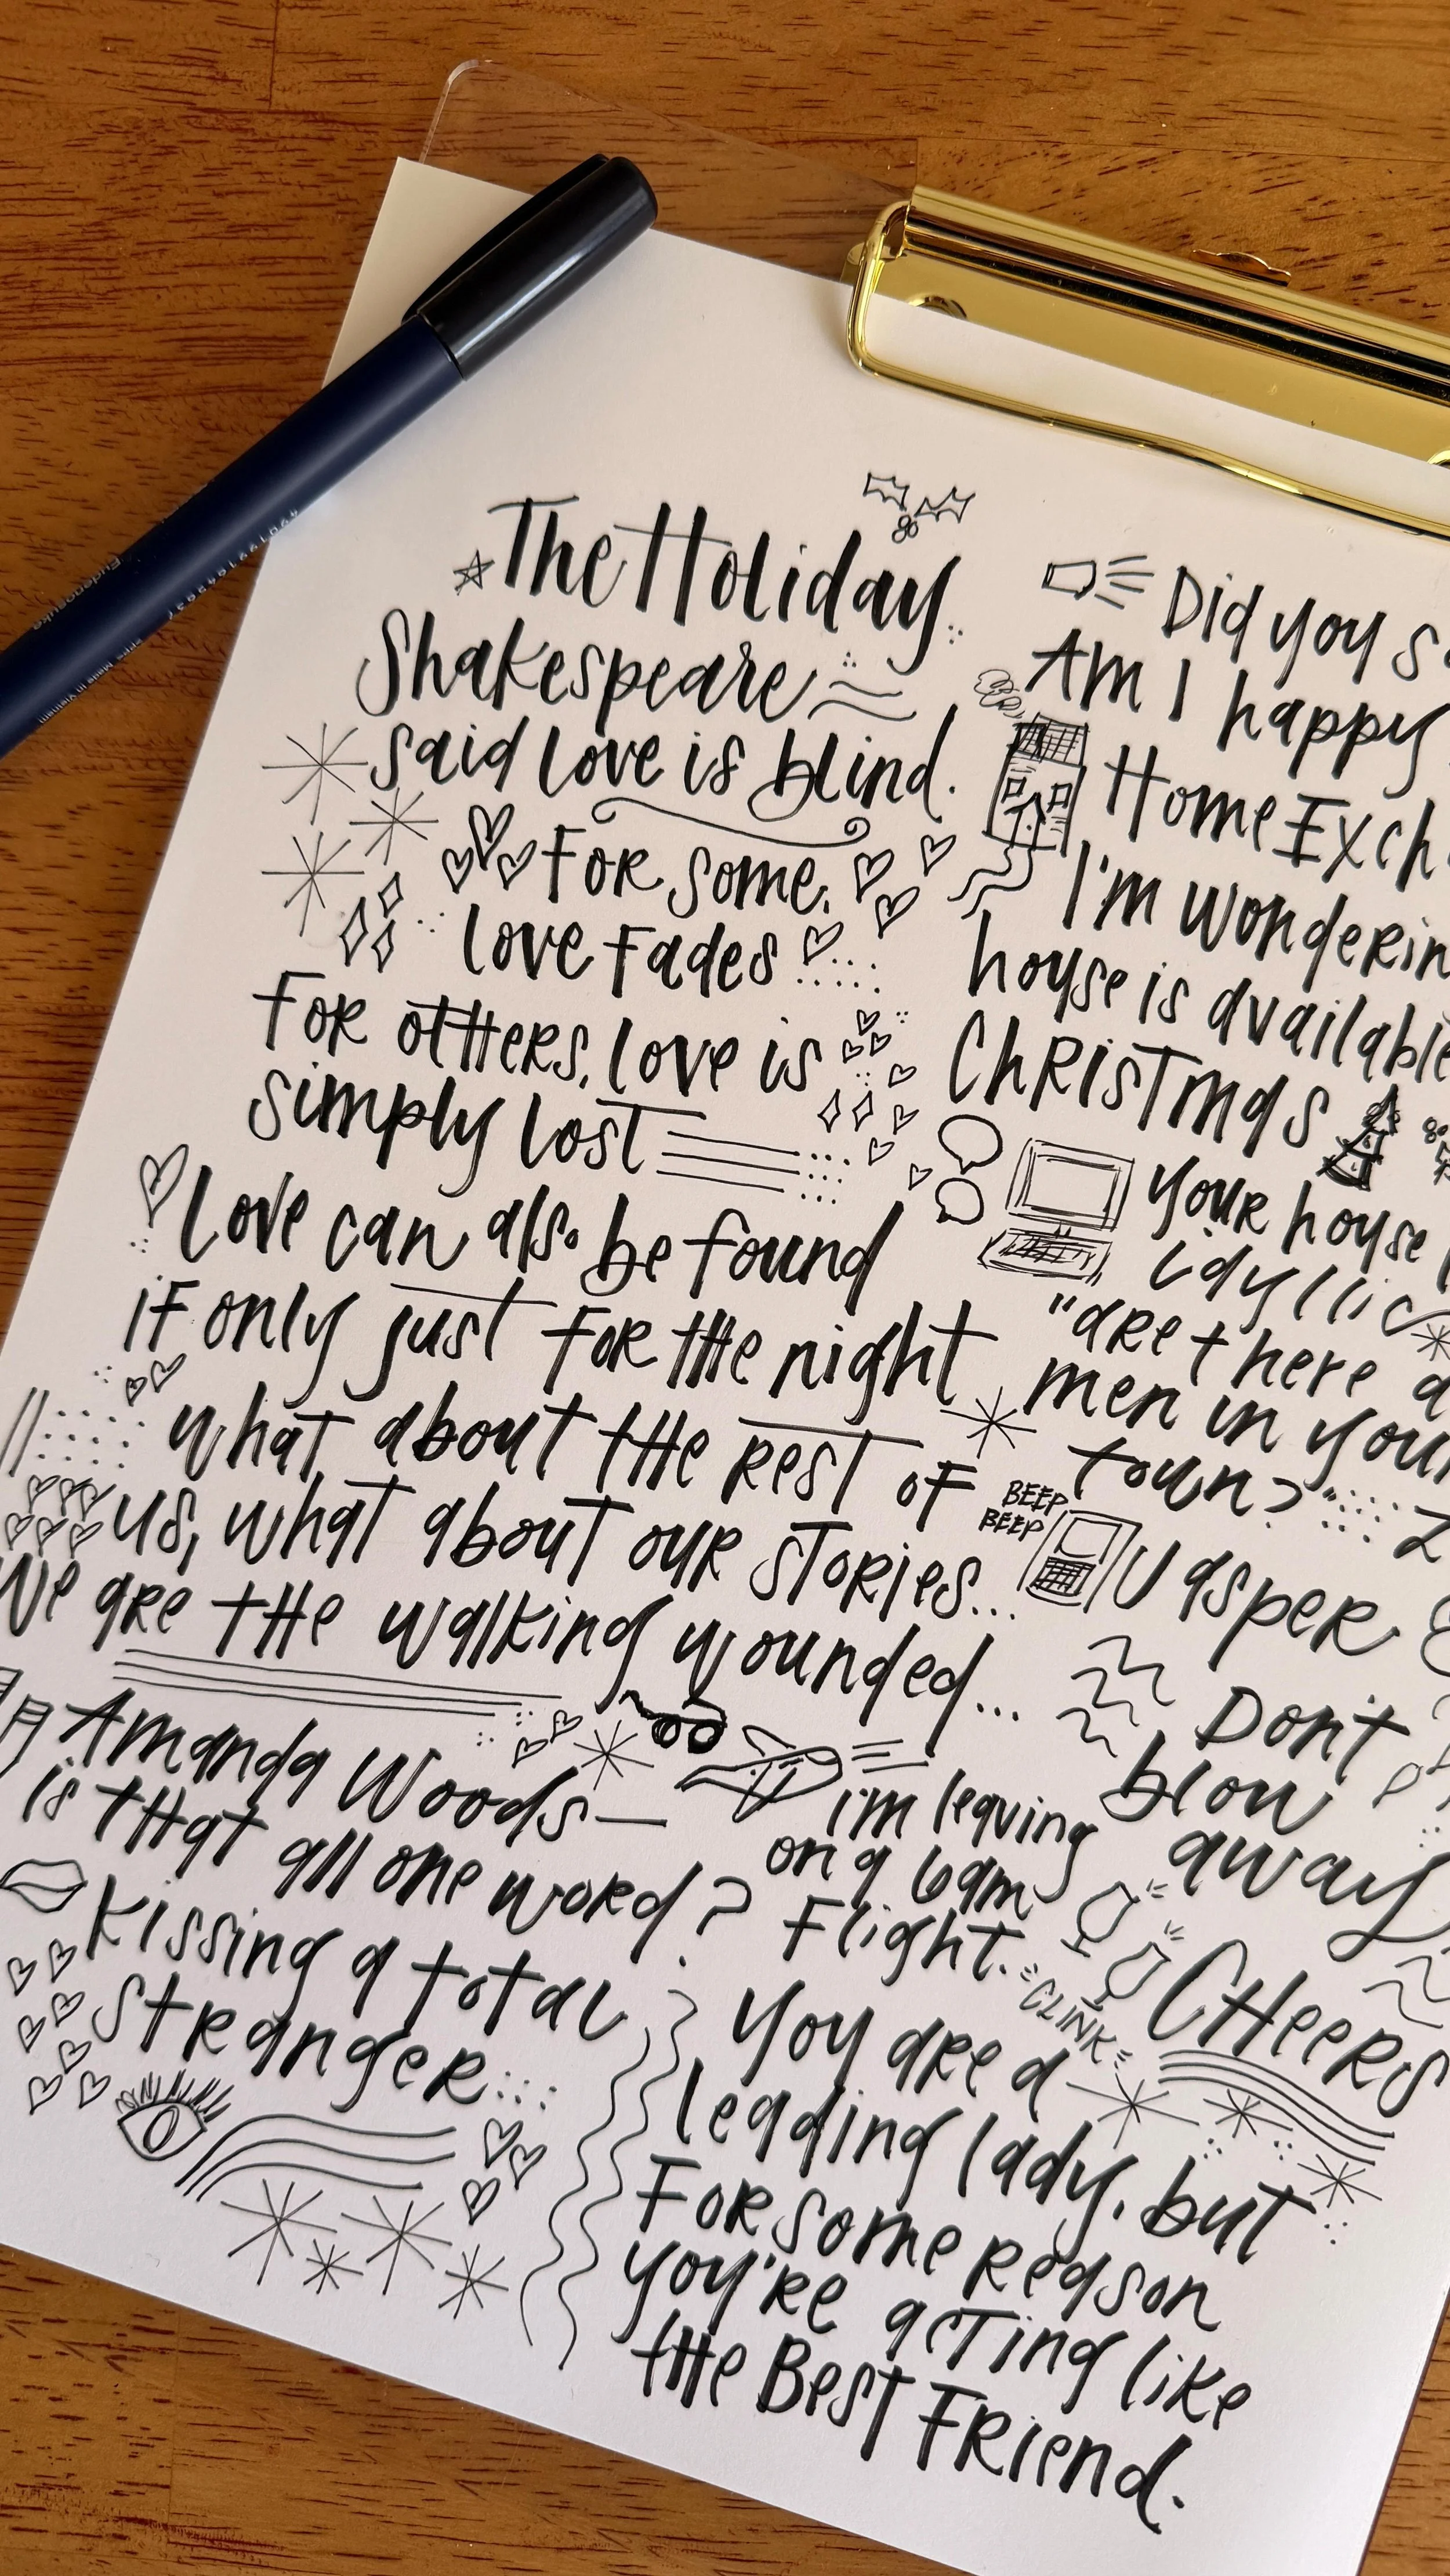 The Holiday
Shakespeare
said love is blind.
For some,
love fades
For others, love is
simply lost
Love can also be found
if only just for the night
what about the rest of
us, what about our stories...
We are the walking wounded...
Amanda Woods—
is that all one word?
Kissing a total
stranger
Did you
Am I happy
Home Exch
I'm wonderin
house is available
Christmas
your house
idyllic
"are there a
men in your
town?"
BEEP
BEEP
U asper
Don't
blow
away
i'm leaving
on a 6am
Flight.
"CLINK"
CHEERS
You are a
leading lady, but
For some reason
you're acting like
the Best Friend.
Made in Vietnam